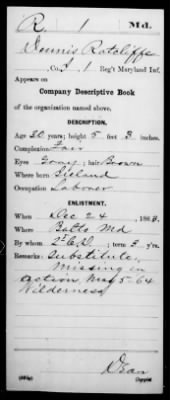 R. 1 Md.
Dennis Ratcliffe
Co. I, 1 Reg't Maryland Inf.
Appears on
Company Descriptive Book
of the organization named above.
DESCRIPTION.
Age 20 years; height 5 feet 3 inches.
Complexion Fair
Eyes Gray; hair Brown
Where born Ireland
Occupation Laborer
ENLISTMENT.
When Dec 24, 1863.
Where Balto Md
By whom ; term 3 y'rs.
Remarks: Substitute,
Missing in
action, May 5-64
Wilderness
Dean
Copyist